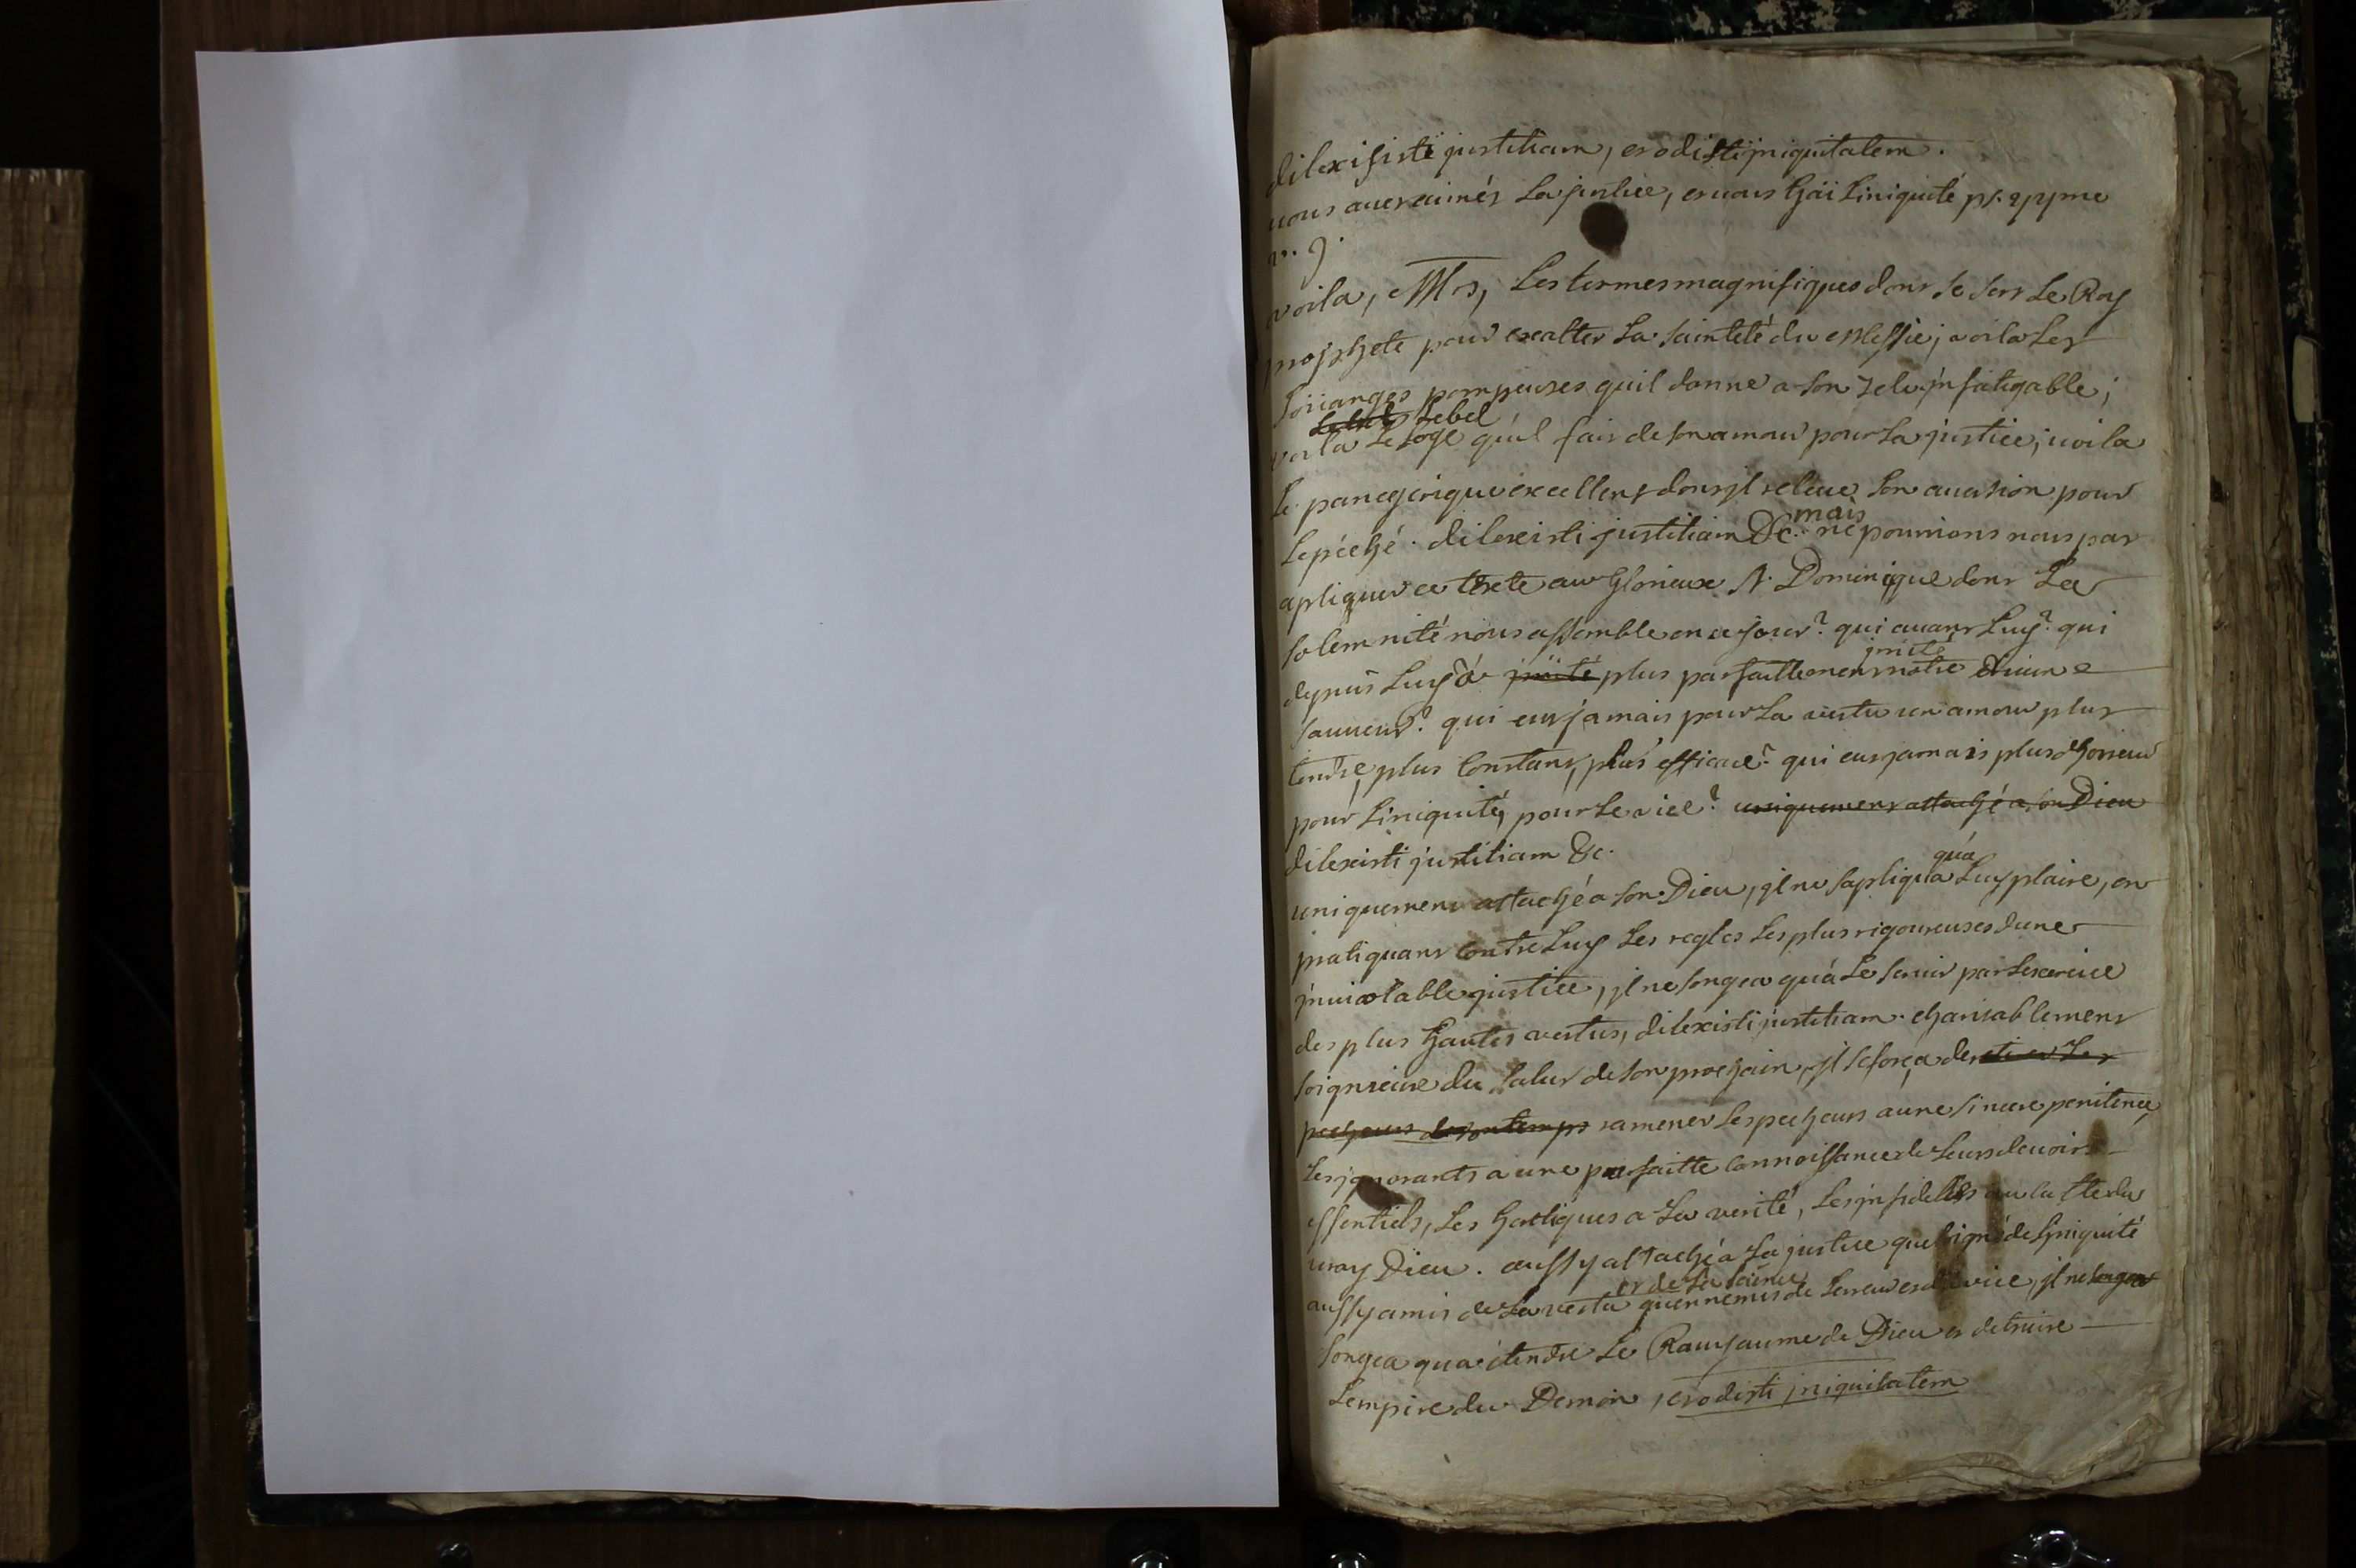 dilexisisti justitiam, et odisti jniquitatem.
vous avez aimés la justice, et vous haï l'iniquité ps.
v. 9.
voila, Mrs, les termes magnifiques dont se sert le Roy
prophete pour exalter la sainteté du Messie; voila les
loüanges pompeuses quil donne a son zele jnfatigable;
le bel
voila l'eloge qu'il fait de son amour pour la justice; voila
le panegirique excellent dont jl releve son aversion pour
mais
le péché. dilexisti justitiam &c. ne pourrions nous pas
apliquer ce texte au glorieux st. Dominique dont la
solemnité nous assemble en ce jour? qui avant luy? qui
jmité
depuis luy à jmité plus parfaittement nôtre divin
sauveur? qui eut jamais pour la vertu un amour plus
tendre, plus constant, plus efficace? qui eut jamais plus d'horreur
pour l'iniquité, pour le vice? uniquement attaché a son Dieu
dilexisti justitiam &c.
qu'a
uniquement attaché a son Dieu, jl ne s'apliqua luy plaire, en
pratiquant contre luy les regles les plus rigoureuses d'une
jnviolable justice, jl ne songea qu'à le servir par l'exercice
des plus hautes vertus, dilexisti justitiam. charitablement
soigneux du salut de son prochain, jl s'eforça de retirer les
pecheurs de son temps ramener les pecheurs a une sincere penitence,
les jgnorants a une parfaitte connoissance de leurs devoirs
essentiels, les heretiques a la verité, les jnfidelles au culte du
vray Dieu. aussy attaché a la justice qu'eloigné de l'jniquité
et de la science
aussy amis de la vertu qu'ennemis de l'erreur et du vice, jl ne songea
songea qu'a étendre le Royaume de Dieu et detruire
l'empire du Demon, et odisti jniquitatem